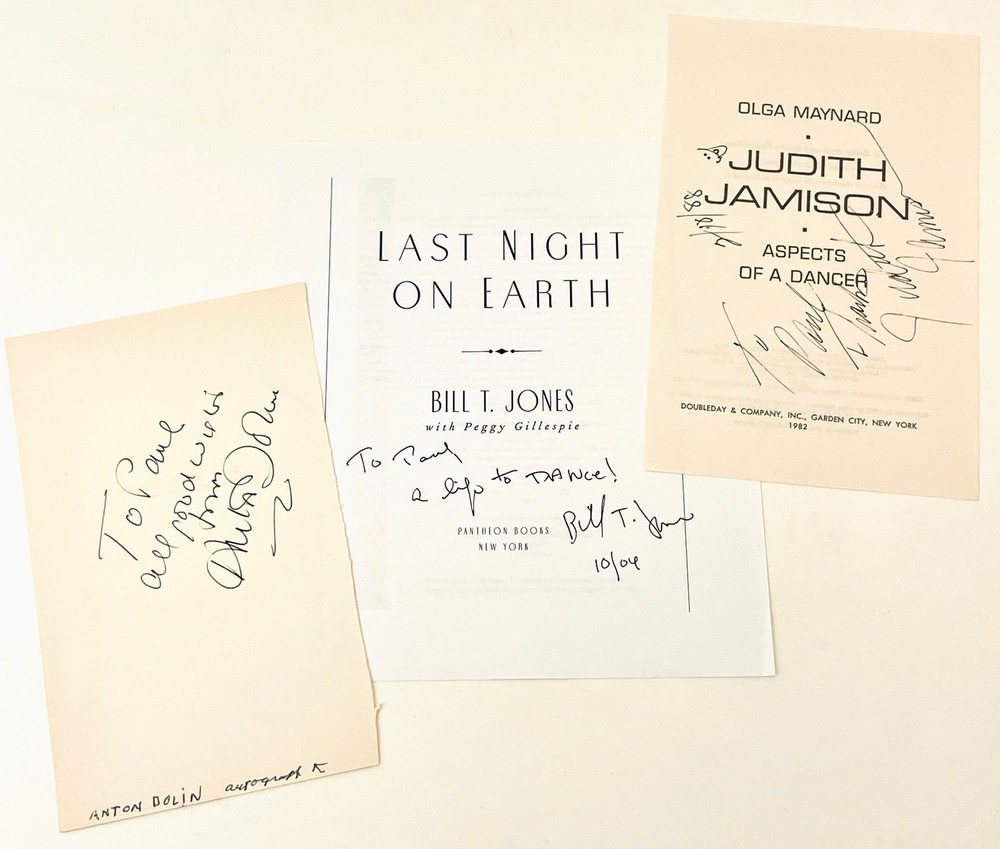 To Paul
all good wishes
from
Anton Dolin
ANTON DOLIN autograph
LAST NIGHT
ON EARTH
BILL T. JONES
with Peggy Gillespie
To Paul
a life to DANCE!
Bill T. Jones
10/04
PANTHEON BOOKS
NEW YORK
OLGA MAYNARD
JUDITH
JAMISON
ASPECTS
OF A DANCER
To
Paul
Thanks
Judith Jamison
DOUBLEDAY & COMPANY, INC., GARDEN CITY, NEW YORK
1982